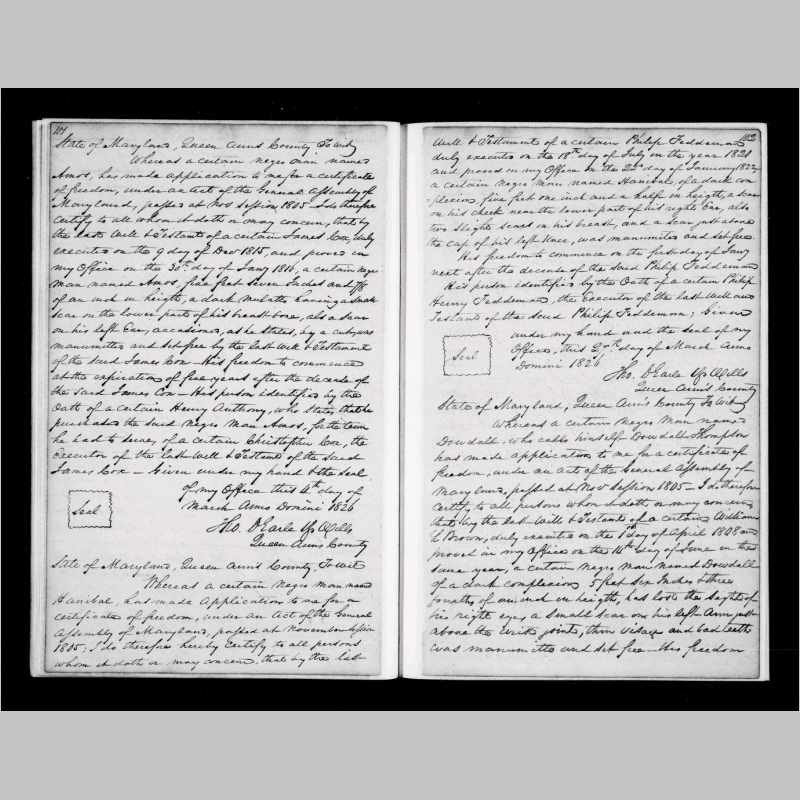 101
State of Maryland, Queen Ann's County, To wit,
Whereas a certain negro man named
Amos, has made application to me for a certificate
of freedom, under an Act of the General Assembly of
Maryland, passed at Nov Session 1805 - I do therefore
certify to all whom it doth or may concern, that by
the last Will & Testant of a certain James Cox, duly
executed on the 9 day of Decr 1815, and proved in
my Office on the 30th day of Jany 1816, a certain negro
man named Amos, five feet seven Inches and
of an inch in heigth, a dark Mulatto having a small
scar on the lower part of his breast bone, also a scar
on his left Ear, occasioned, as he states, by a cut, was
manumitted and set free by the last will & Testament
of the said James Cox - His freedom to commence
at the expiration of five years after the decease of
the said James Cox - His person identified by the
Oath of a certain Henry Anthony, who States, that he
purchased the said Negro Man Amos, for the term
he had to serve, of a certain Christopher Cox, the
Executor of the last Will & Testamt of the said
James Cox - Given under my hand & the Seal
Seal
of my Office this 4th day of
March Anno Domini 1826
Tho. C Earle Rg Wills
Queen Anns County
State of Maryland, Queen Ann's County, To wit
Whereas a certain Negro Man named
Hanibal, has made Application to me for a
certificate of freedom, under an Act of the General
Assembly of Maryland, passed at November Session
1805; I do therefore hereby Certify to all persons
whom it doth or may concern, that by the last
102
Will & Testament of a certain Philip Feddeman
duly executed on the 18th day of July in the year 1821
and proved in my Office on the 22d day of January 1822,
a certain Negro Man named Hanibal, of a dark com
-plexion, five feet one inch and a half in heigth, a scar
on his cheek near the lower part of his right Ear, also
two slight scars on his breast, and a scar just above
the cap of his left knee, was manumitted and set free.
His freedom to commence on the first day of Jany
next after the decease of the said Philip Feddeman
His person identified by the Oath of a certain Philip
Henry Feddeman, the Executor of the last Will and
Testamt of the said Philip Feddeman; Given
Seal
under my hand and the Seal of my
Office, this day of March Anno
Domini 1826
Tho. C Earle Rg Wills
Queen Ann's County
State of Maryland, Queen Ann's County To wit,
Whereas a certain Negro Man named
Dowdall, who calls himself Dowdall Thompson
has made application to me for a certificate of
freedom, under an act of the General Assembly of
Maryland, passed at Nov Session 1805 - I do therefore
certify, to all persons whom it doth or may concern
that by the last Will & Testamt of a certain William
Brown, duly executed on the day of April 1808 and
proved in my Office on the 14th day of June in the
same year, a certain negro man named Dowdall
of a dark complexion, 5 feet six Inches & three
fourths of an inch in heigth, has lost the sight of
his right eye, a small scar on his left Arm just
above the Wrist joint, thin visage and bad teeth
was manumitted and set free - His freedom